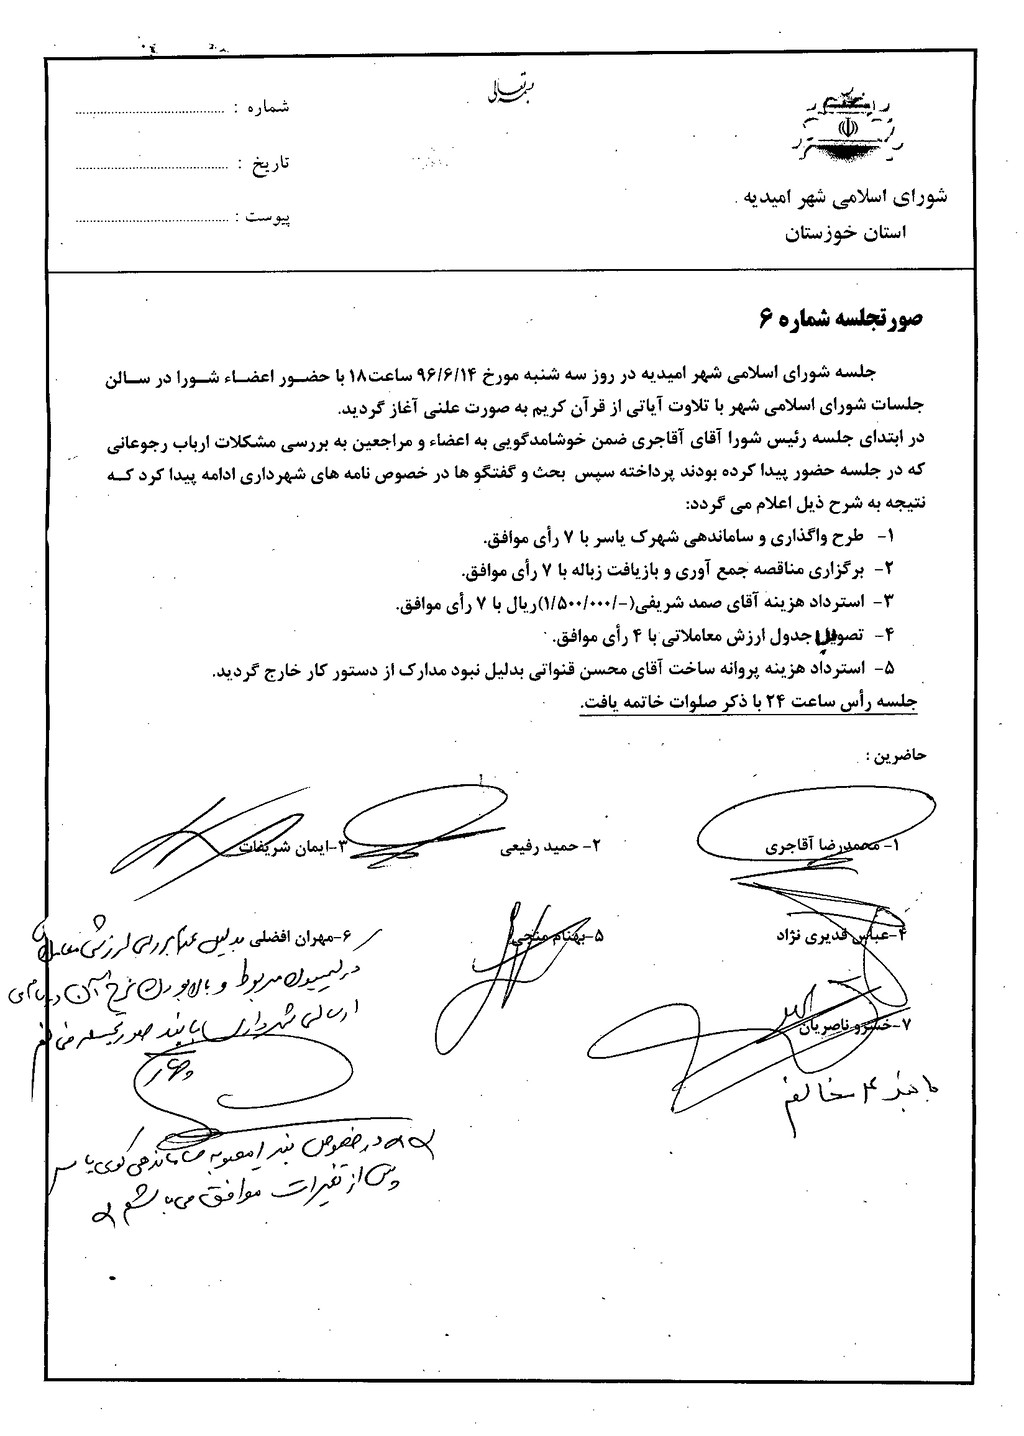 بسمه تعالی
شورای اسلامی شهر امیدیه
استان خوزستان
شماره :
تاریخ :
پیوست :
صورتجلسه شماره ۶
جلسه شورای اسلامی شهر امیدیه در روز سه شنبه مورخ ۹۶/۶/۱۴ ساعت۱۸ با حضور اعضاء شورا در سالن
جلسات شورای اسلامی شهر با تلاوت آیاتی از قرآن کریم به صورت علنی آغاز گردید.
در ابتدای جلسه رئیس شورا آقای آقاجری ضمن خوشامدگویی به اعضاء و مراجعین به بررسی مشکلات ارباب رجوعانی
که در جلسه حضور پیدا کرده بودند پرداخته سپس بحث و گفتگو ها در خصوص نامه های شهرداری ادامه پیدا کرد که
نتیجه به شرح ذیل اعلام می گردد:
۱- طرح واگذاری و ساماندهی شهرک یاسر با ۷ رأی موافق.
۲- برگزاری مناقصه جمع آوری و بازیافت زباله با ۷ رأی موافق.
۳- استرداد هزینه آقای صمد شریفی(-/۱/۵۰۰/۰۰۰)ریال با ۷ رأی موافق.
۴- جدول ارزش معاملاتی با ۴ رأی موافق.
۵- استرداد هزینه پروانه ساخت آقای محسن قنواتی بدلیل نبود مدارک از دستور کار خارج گردید.
جلسه رأس ساعت ۲۴ با ذکر صلوات خاتمه یافت.
حاضرین :
۱- محمدرضا آقاجری
۲- حمید رفیعی
۳-ایمان شریفات
۴-عباس قدیری نژاد
۵-بهنام منجی
۶-مهران افضلی بدلیل ارزش
در مربوط و بالا بودن نرخ آن
ارسالی شهرداری با بند صورتجلسه مخالفم
چهار
۷-خسرو ناصریان
با بند ۴ مخالفم
در خصوص بند ۱ مصوبه ساماندهی کوی یاسر
پس از تغییرات موافق می باشم